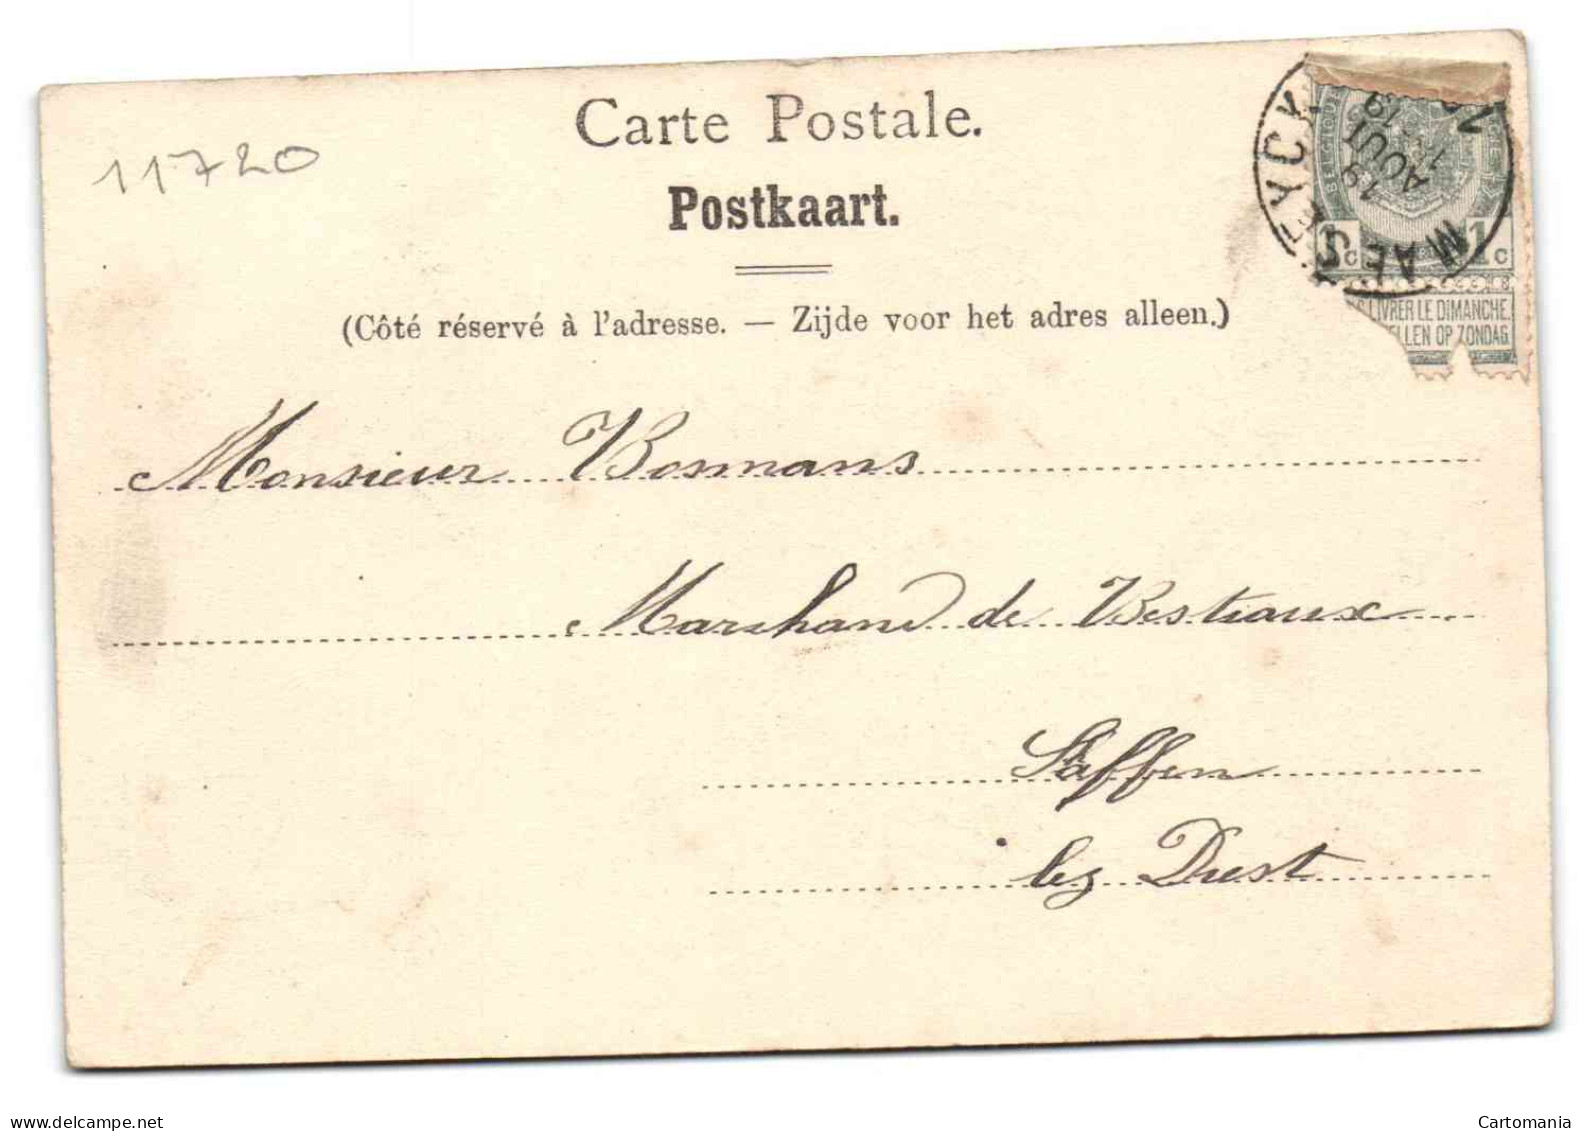 11720
Carte Postale.
Postkaart.
(Côté réservé à l'adresse. — Zijde voor het adres alleen.)
MAESEYCK
19
AOUT
BELGIQUE
1c 1c
LIVRER LE DIMANCHE.
LLEN OP ZONDAG
Monsieur Bosmans
Marchand de Bestiaux
Saffen
lez Diest
www.delcampe.net
Cartomania